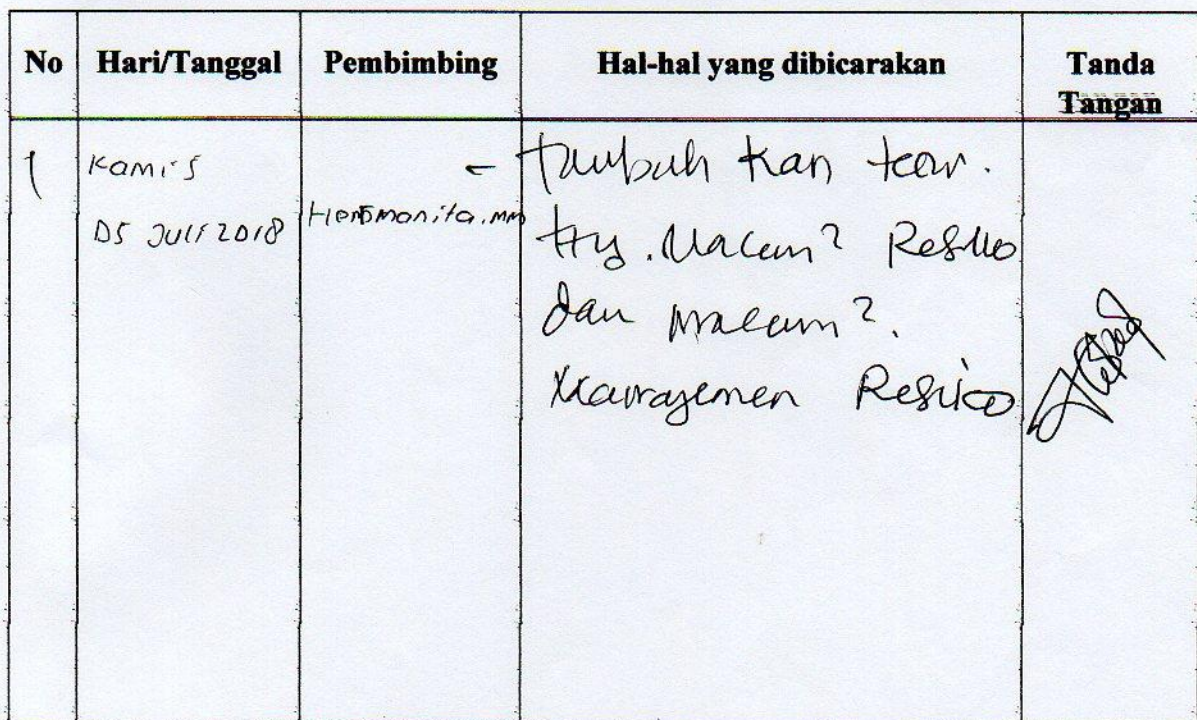 No Hari/Tanggal Pembimbing Hal-hal yang dibicarakan Tanda Tangan
1 Kamis Hensmonita.MM - tambah kan teori
05 Juli 2018 ttg. Macam2 Resiko
dan macam2.
Manajemen Resiko